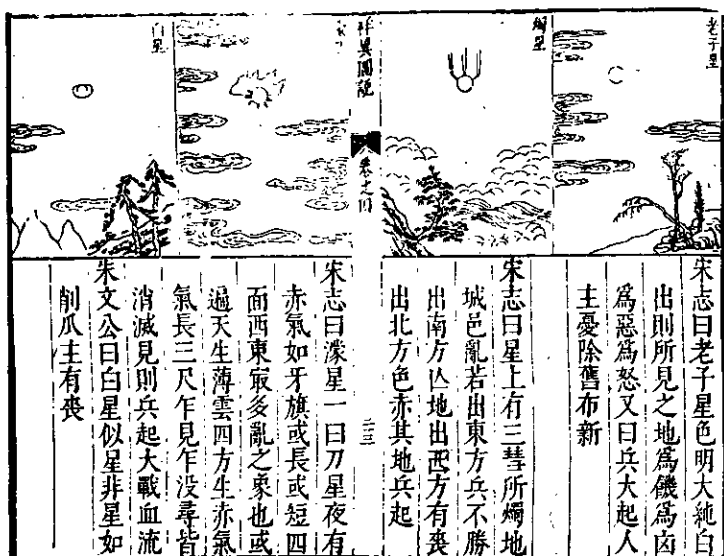 老子星
宋志曰老子星色明大純白
出則所見之地為饑為凶
為惡為怒又曰兵大起人
主憂除舊布新
燭星
宋志曰星上有三彗所燭地
城邑亂若出東方兵不勝
出南方亾地出西方有喪
出北方色赤其地兵起
祥異圖說
卷之四
二三
宋志曰濛星一曰刀星夜有
赤氣如牙旗或長或短四
面西東㝡多亂之象也或
遍天生薄雲四方生赤氣
氣長三尺乍見乍没尋皆
消滅見則兵起大戰血流
白星
朱文公曰白星似星非星如
削瓜主有喪